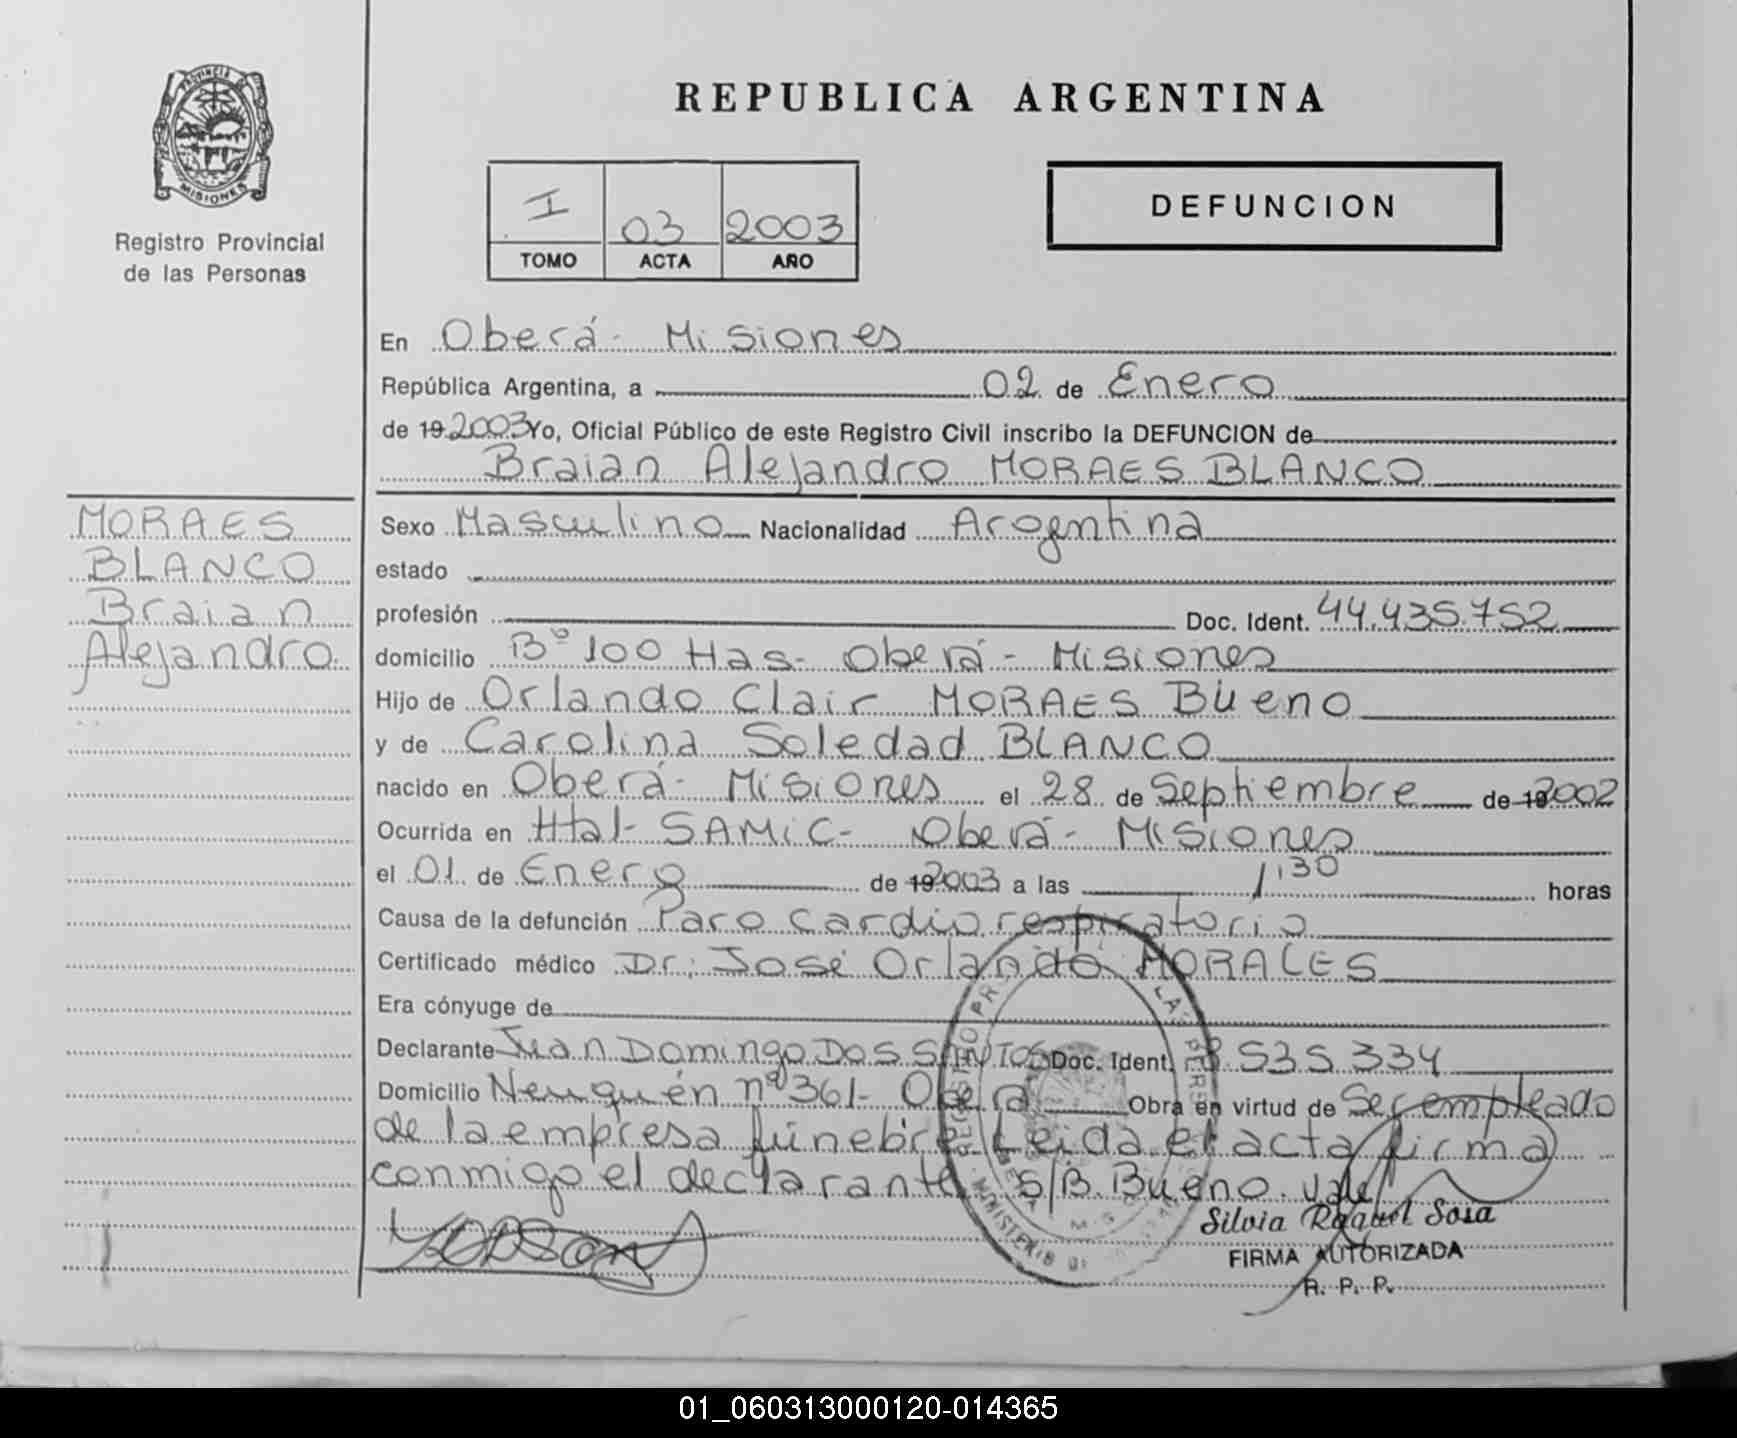 PROVINCIA DE
MISIONES
Registro Provincial
de las Personas
REPUBLICA ARGENTINA
I 03 2003
TOMO ACTA AÑO
DEFUNCION
En Oberá - Misiones
República Argentina, a 02 de Enero
de 19 2003 Yo, Oficial Público de este Registro Civil inscribo la DEFUNCION de
Braian Alejandro MORAES BLANCO
MORAES
BLANCO
Braian
Alejandro
Sexo Masculino Nacionalidad Argentina
estado
profesión Doc. Ident. 44.435.752
domicilio Bº 100 Has - Oberá - Misiones
Hijo de Orlando Clair MORAES Bueno
y de Carolina Soledad BLANCO
nacido en Oberá - Misiones el 28 de Septiembre de 19 2002
Ocurrida en Htal - SAMiC - Oberá - Misiones
el 01 de Enero de 19 2003 a las 1,30 horas
Causa de la defunción Paro cardio respiratorio
Certificado médico Dr: José Orlando MORALES
Era cónyuge de
Declarante Juan Domingo DOS SANTOS Doc. Ident. 8.535.334
Domicilio Neuquén nº 361 - Oberá Obra en virtud de Ser empleado
de la empresa fúnebre Leida el acta firma
conmigo el declarante S/B. Bueno. Vale
Silvia Raquel Sosa
FIRMA AUTORIZADA
R. P. P.
01_060313000120-014365